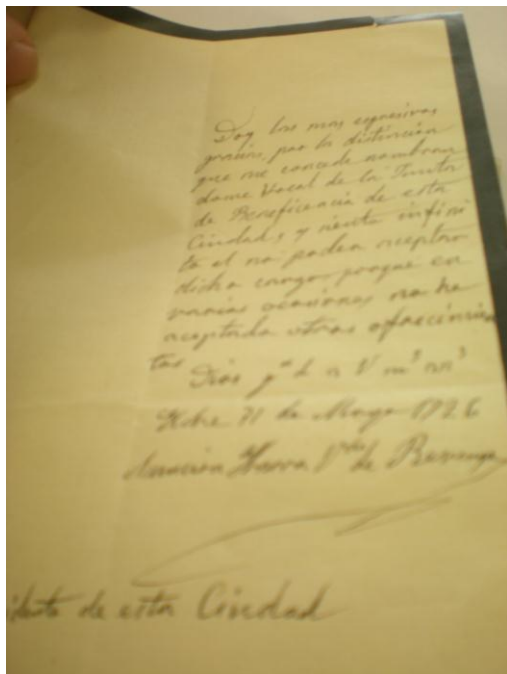 Doy las mas espresivas
gracias, por la distincion
que me concede nombran
dome Vocal de la Junta
de Beneficencia de esta
Ciudad, y siento infini
to el no poder aceptar
dicho cargo, porque en
varias ocasiones no he
aceptado otros ofrecimien
tos
Dios gue a V ms as
de Mayo
Vda de
idente de esta Ciudad